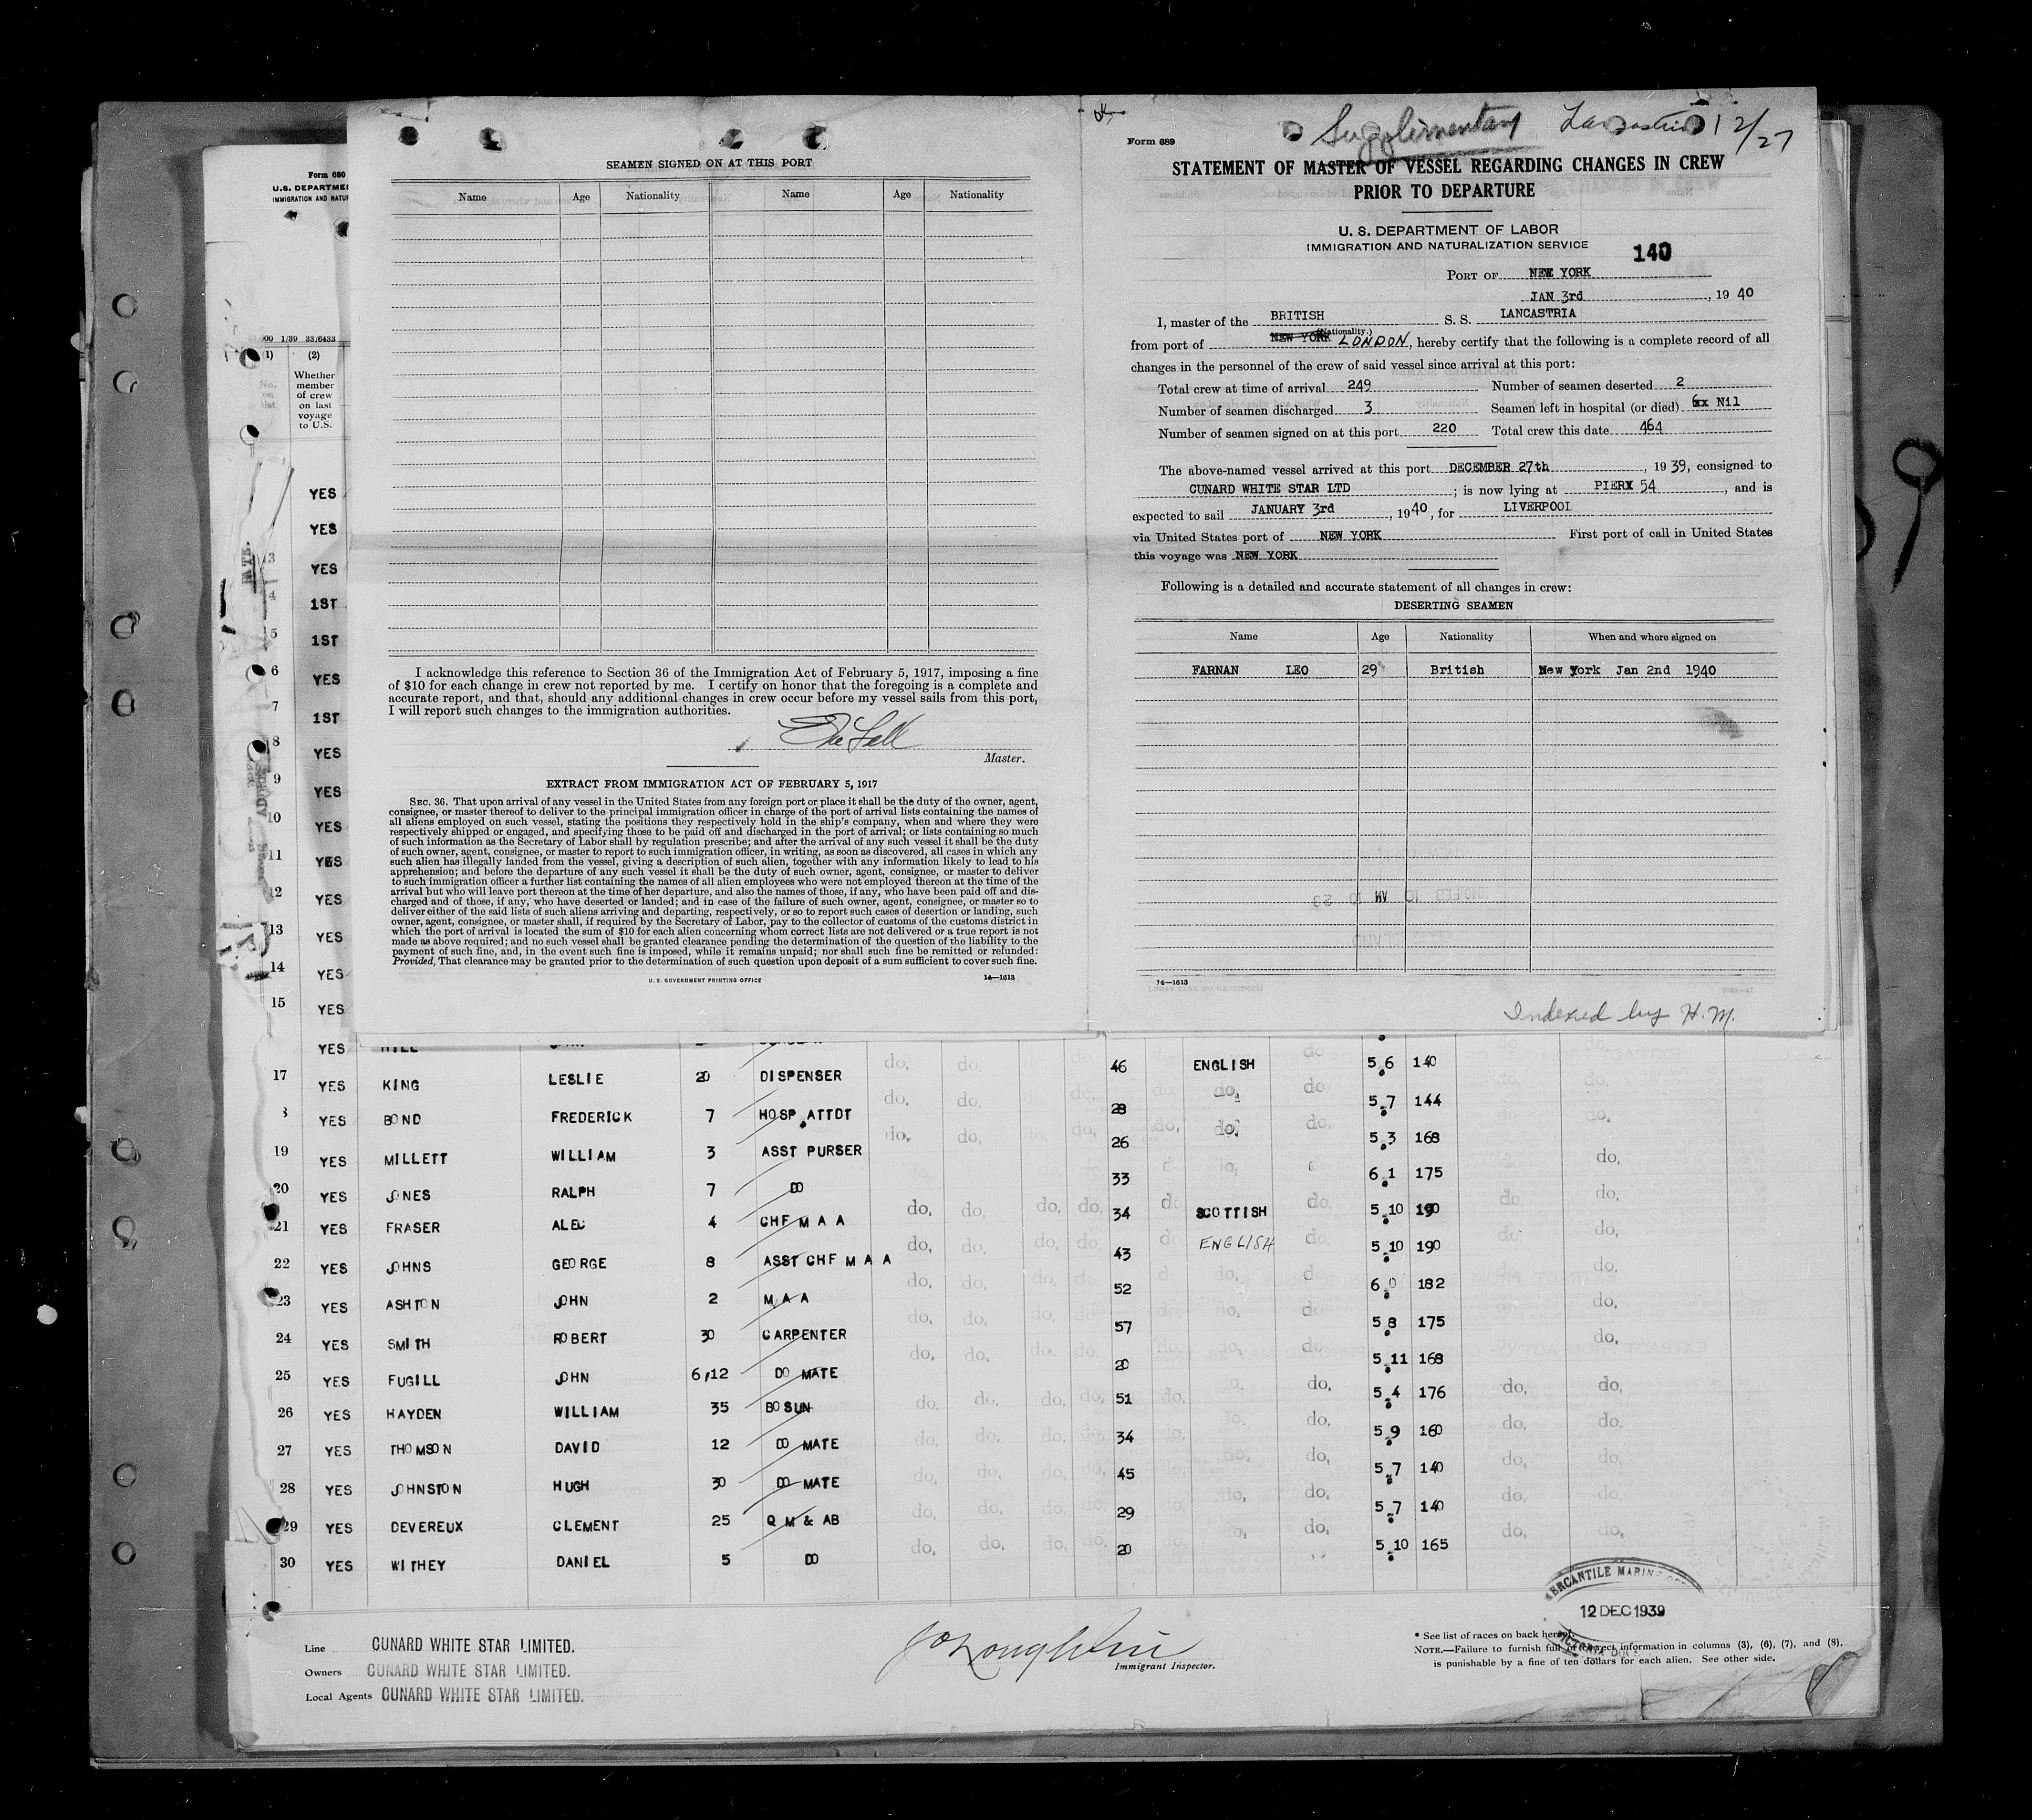 SEAMEN SIGNED ON AT THIS PORT
Name Age Nationality Name Age Nationality
I acknowledge this reference to Section 36 of the Immigration Act of February 5, 1917, imposing a fine
of $10 for each change in crew not reported by me. I certify on honor that the foregoing is a complete and
accurate report, and that, should any additional changes in crew occur before my vessel sails from this port,
I will report such changes to the immigration authorities.
Master.
EXTRACT FROM IMMIGRATION ACT OF FEBRUARY 5, 1917
SEC. 36. That upon arrival of any vessel in the United States from any foreign port or place it shall be the duty of the owner, agent,
consignee, or master thereof to deliver to the principal immigration officer in charge of the port of arrival lists containing the names of
all aliens employed on such vessel, stating the positions they respectively hold in the ship's company, when and where they were
respectively shipped or engaged, and specifying those to be paid off and discharged in the port of arrival; or lists containing so much
of such information as the Secretary of Labor shall by regulation prescribe; and after the arrival of any such vessel it shall be the duty
of such owner, agent, consignee, or master to report to such immigration officer, in writing, as soon as discovered, all cases in which any
such alien has illegally landed from the vessel, giving a description of such alien, together with any information likely to lead to his
apprehension; and before the departure of any such vessel it shall be the duty of such owner, agent, consignee, or master to deliver
to such immigration officer a further list containing the names of all alien employees who were not employed thereon at the time of the
arrival but who will leave port thereon at the time of her departure, and also the names of those, if any, who have been paid off and dis-
charged and of those, if any, who have deserted or landed; and in case of the failure of such owner, agent, consignee, or master so to
deliver either of the said lists of such aliens arriving and departing, respectively, or so to report such cases of desertion or landing, such
owner, agent, consignee, or master shall, if required by the Secretary of Labor, pay to the collector of customs of the customs district in
which the port of arrival is located the sum of $10 for each alien concerning whom correct lists are not delivered or a true report is not
made as above required; and no such vessel shall be granted clearance pending the determination of the question of the liability to the
payment of such fine, and, in the event such fine is imposed, while it remains unpaid; nor shall such fine be remitted or refunded:
Provided, That clearance may be granted prior to the determination of such question upon deposit of a sum sufficient to cover such fine.
U. S. GOVERNMENT PRINTING OFFICE 14—1613
Supplimentary Lancastria 12/27
Form 689
STATEMENT OF MASTER OF VESSEL REGARDING CHANGES IN CREW
PRIOR TO DEPARTURE
U. S. DEPARTMENT OF LABOR
IMMIGRATION AND NATURALIZATION SERVICE
140
PORT OF NEW YORK
JAN 3rd , 19 40
I, master of the BRITISH S. S. LANCASTRIA
(Nationality.)
from port of NEW YORK LONDON, hereby certify that the following is a complete record of all
changes in the personnel of the crew of said vessel since arrival at this port:
Total crew at time of arrival 249 Number of seamen deserted 2
Number of seamen discharged 3 Seamen left in hospital (or died) Nil
Number of seamen signed on at this port 220 Total crew this date 464
The above-named vessel arrived at this port DECEMBER 27th , 19 39, consigned to
CUNARD WHITE STAR LTD ; is now lying at PIERX 54 , and is
expected to sail JANUARY 3rd , 19 40, for LIVERPOOL
via United States port of NEW YORK First port of call in United States
this voyage was NEW YORK
Following is a detailed and accurate statement of all changes in crew:
DESERTING SEAMEN
Name Age Nationality When and where signed on
FARNAN LEO 29 British New York Jan 2nd 1940
14—1613
Indexed by H.M.
Form 680
U.S. DEPARTME
IMMIGRATION AND NATUR
000 1/39 33/6433
(1) (2)
Whether
member
of crew
on last
voyage
to U.S.
YES
YES
3 YES
4 1ST
5 1ST
6 YES
7 1ST
8 YES
9 YES
10 YES
11 YES
12 YES
13 YES
14 YES
15 YES
YES HILL
17 YES KING LESLIE 20 DISPENSER do, do. 46 ENGLISH do 5.6 140
8 YES BOND FREDERICK 7 HOSP ATTDT do, do. do, 28 do, do 5.7 144 do.
19 YES MILLETT WILLIAM 3 ASST PURSER do, do. do, 26 do, do. 5.3 168 do,
20 YES JONES RALPH 7 DO 33 6.1 175 do,
21 YES FRASER ALEC 4 CHF M A A do, do. do, do, 34 do SCOTTISH do. 5.10 190 do,
22 YES JOHNS GEORGE 8 ASST CHF M A A do, do. do, do, 43 ENGLISH do. 5.10 190 do,
23 YES ASHTON JOHN 2 M A A do, do. do. do, 52 do, do. 6.0 182 do,
24 YES SMITH ROBERT 30 CARPENTER do, do. do, do, 57 do, do 5.8 175 do,
25 YES FUGILL JOHN 6/12 DO MATE do, do. do. do, 20 do, do. 5.11 168
26 YES HAYDEN WILLIAM 35 BOSUN do, do. do, do, 51 do. do, 5.4 176 do, do,
27 YES THOMSON DAVID 12 DO MATE do, do. do, do, 34 do. do, 5.9 160 do, do,
28 YES JOHNSTON HUGH 30 DO MATE do, do. do, do, 45 do. do, 5.7 140 do, do,
29 YES DEVEREUX CLEMENT 25 Q M & AB do, do, do, do, 29 do, do, 5.7 140 do, do,
30 YES WITHEY DANIEL 5 DO do, do. do, do, 20 do, 5.10 165 do, do,
Line CUNARD WHITE STAR LIMITED.
Owners CUNARD WHITE STAR LIMITED.
Local Agents CUNARD WHITE STAR LIMITED.
Immigrant Inspector.
MERCANTILE MARINE
12 DEC 1939
* See list of races on back hereof.
NOTE.—Failure to furnish full or correct information in columns (3), (6), (7), and (8),
is punishable by a fine of ten dollars for each alien. See other side.